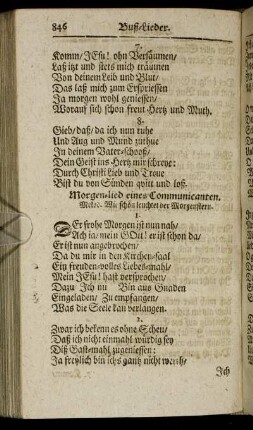 846 Buß-Lieder.
7.
Komm/ JEsu! ohn Versäumen/
Laß itzt und stets mich träumen
Von deinem Leib und Blut/
Das laß mich zum Ersprießen
Ja morgen wohl geniessen/
Worauf sich schon freut Hertz und Muth.
8.
Gieb/ daß/ da ich nun ruhe
Und Aug und Mund zuthue
In deinem Vater-schooß/
Dein Geist ins Hertz mir schreye:
Durch Christi Leib und Treue
Bist du von Sünden quitt und loß.
Morgen-lied eines Communicanten.
Melod. Wie schön leuchtet der Morgenstern.
1.
DEr frohe Morgen ist nun nah/
Ach ja/ mein GOtt! er ist schon da/
Er ist nun angebrochen/
Da du mir in den Kirchen-saal
Ein freuden-volles Liebes-mahl/
Mein JEsu! hast versprochen/
Dazu Ich nu Bin aus Gnaden
Eingeladen/ Zu empfangen/
Was die Seele kan verlangen.
2.
Zwar ich bekenn es ohne Scheu/
Daß ich nicht einmahl würdig sey
Diß Gast-mahl zugeniessen:
Ja freylich bin ichs gantz nicht werth/
Ich